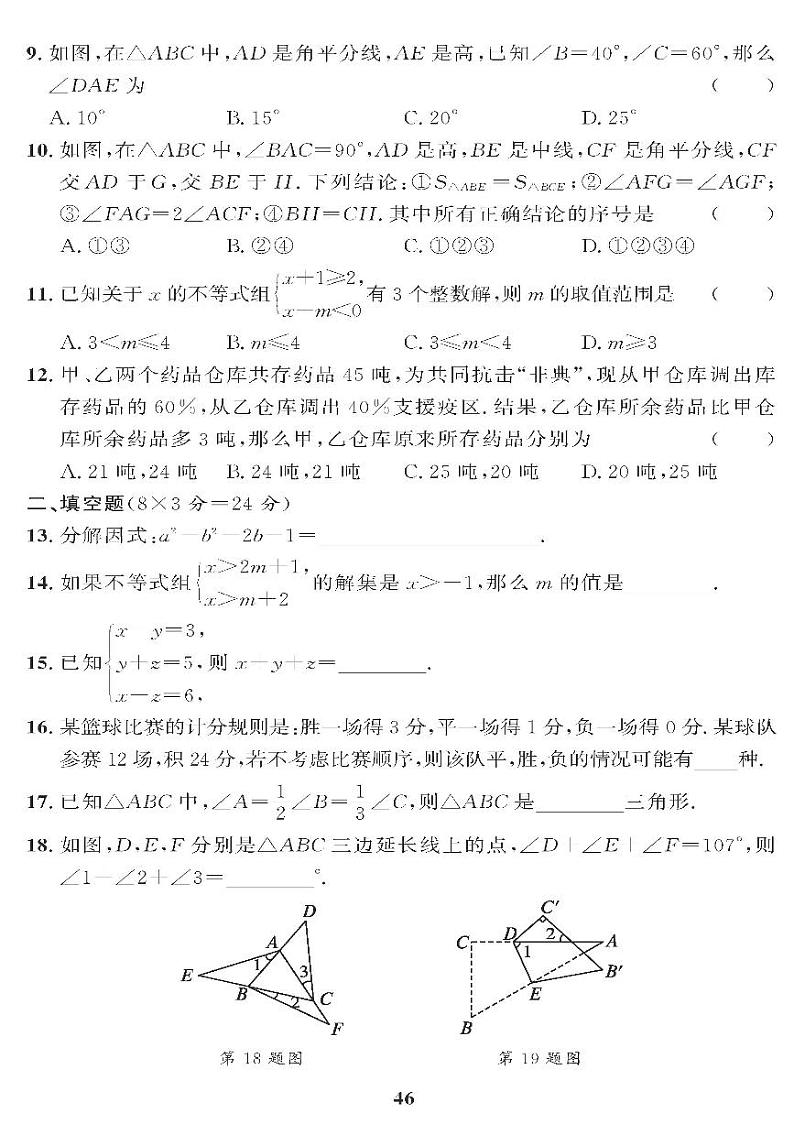 9. 如图,在△ABC中,AD是角平分线,AE是高,已知∠B=40°,∠C=60°,那么
∠DAE为 (  )
A. 10° B. 15° C. 20° D. 25°
10. 如图,在△ABC中,∠BAC=90°,AD是高,BE是中线,CF是角平分线,CF
交AD于G,交BE于H. 下列结论:①S△ABE=S△BCE;②∠AFG=∠AGF;
③∠FAG=2∠ACF;④BH=CH. 其中所有正确结论的序号是 (  )
A. ①③ B. ②④ C. ①②③ D. ①②③④
11. 已知关于x的不等式组{x+1≥2, x-m<0 有3个整数解,则m的取值范围是 (  )
A. 3<m≤4 B. m≤4 C. 3≤m<4 D. m≥3
12. 甲、乙两个药品仓库共存药品45吨,为共同抗击“非典”,现从甲仓库调出库
存药品的60%,从乙仓库调出40%支援疫区. 结果,乙仓库所余药品比甲仓
库所余药品多3吨,那么甲,乙仓库原来所存药品分别为 (  )
A. 21吨,24吨 B. 24吨,21吨 C. 25吨,20吨 D. 20吨,25吨
二、填空题(8×3分=24分)
13. 分解因式:a²-b²-2b-1=________.
14. 如果不等式组{x>2m+1, x>m+2 的解集是x>-1,那么m的值是________.
15. 已知{x y=3, y+z=5, x-z=6, 则x-y+z=________.
16. 某篮球比赛的计分规则是:胜一场得3分,平一场得1分,负一场得0分. 某球队
参赛12场,积24分,若不考虑比赛顺序,则该队平,胜,负的情况可能有____种.
17. 已知△ABC中,∠A=1/2∠B=1/3∠C,则△ABC是________三角形.
18. 如图,D、E、F分别是△ABC三边延长线上的点,∠D+∠E+∠F=107°,则
∠1-∠2+∠3=________°.
D
A
E
1
3
B
2
C
F
C′
C
D
2
A
1
B′
E
B
第18题图 第19题图
46